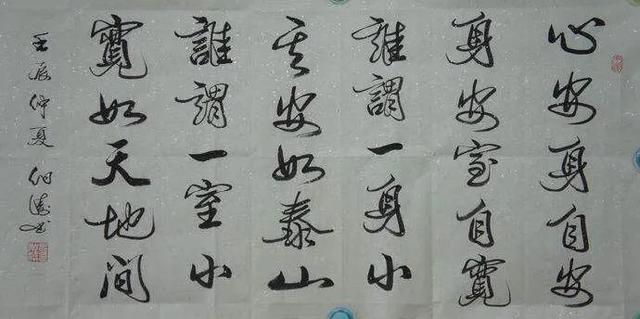 心安身自安
身安室自寬
誰謂一身小
其安如泰山
誰謂一室小
寬如天地間
壬辰仲夏 书